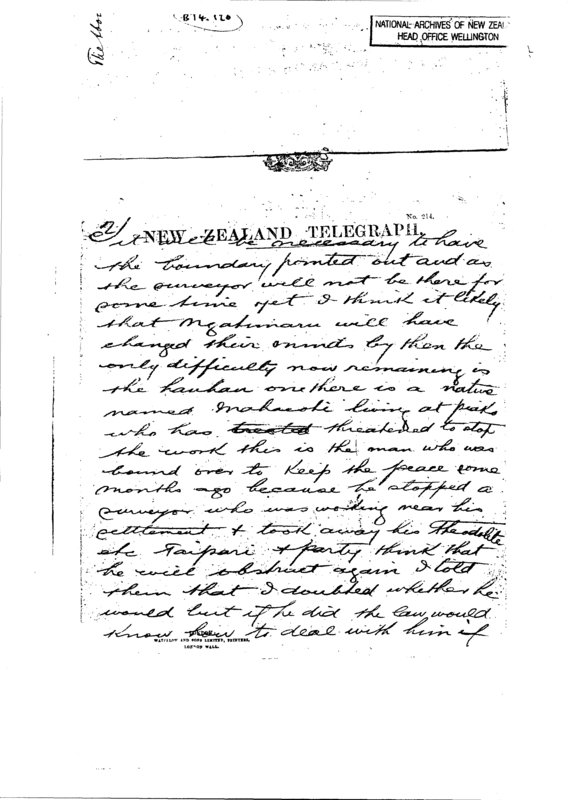 B74.120
NATIONAL ARCHIVES OF NEW ZEAL
HEAD OFFICE WELLINGTON
No. 214.
NEW ZEALAND TELEGRAPH.
2/ it will be necessary to have
the boundary pointed out and as
the surveyor will not be there for
some time yet I think it likely
that Ngatimaru will have
changed their minds by then the
only difficulty now remaining is
the hauhau one there is a native
named living at
who has treated threatened to stop
the work this is the man who was
bound over to keep the peace some
months ago because he stopped a
surveyor who was working near his
settlement & took away his Theodolite
etc Taipari & party think that
he will obstruct again I told
them that I doubted whether he
would but if he did the law would
know how to deal with him if
WATERLOW AND SONS LIMITED, PRINTERS,
LONDON WALL.